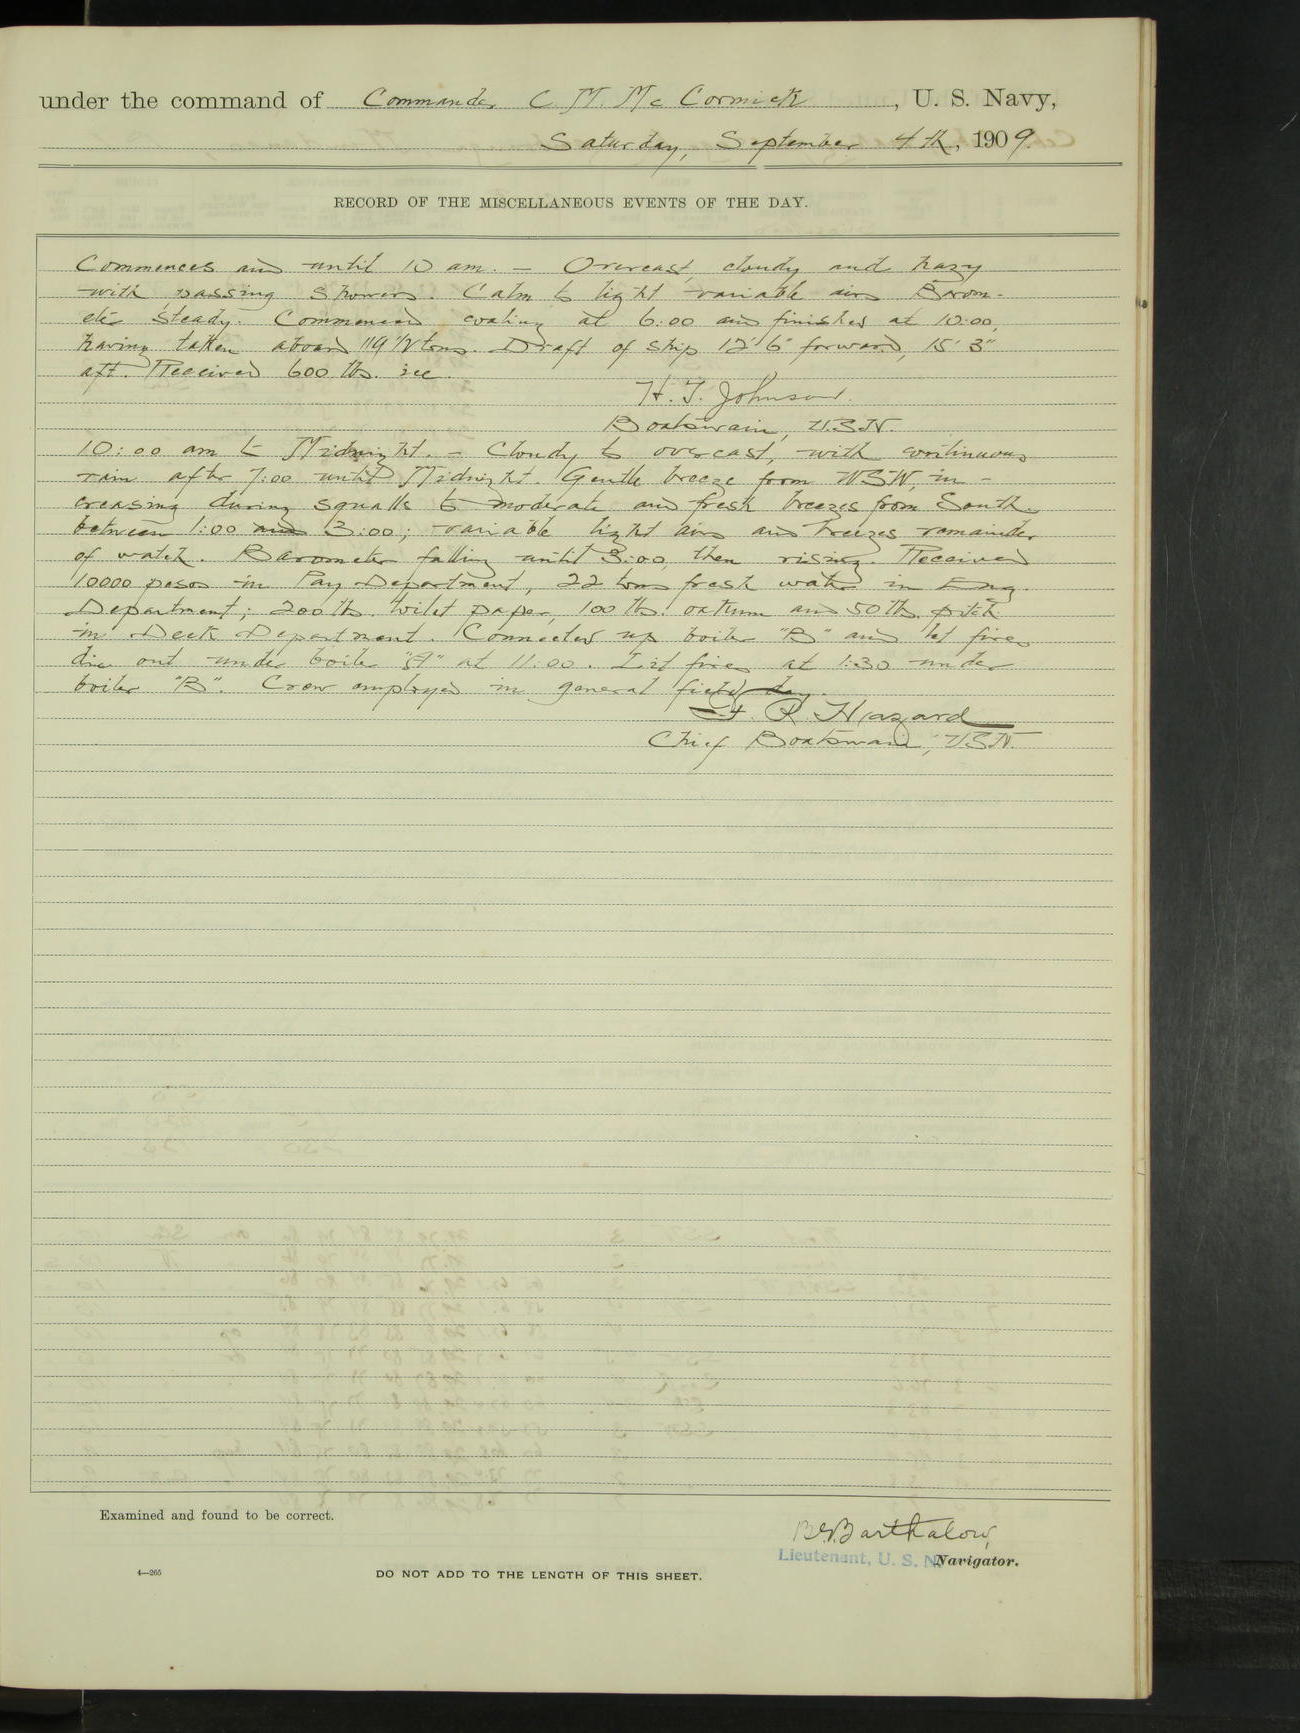 under the command of Commander C. M. McCormick, U. S. Navy,
Saturday, September 4th, 1909.
RECORD OF THE MISCELLANEOUS EVENTS OF THE DAY.
Commences and until 10 am. — Overcast, cloudy and hazy
with passing showers. Calm to light variable airs Barom-
eter steady. Commenced coaling at 6:00 and finished at 10:00,
having taken aboard 119 1/2 tons. Draft of ship 12' 6" forward, 15' 3"
aft. Received 600 lbs. ice.
H. T. Johnson.
Boatswain, U.S.N.
10:00 am to Midnight. — Cloudy to overcast, with continuous
rain after 7:00 until Midnight. Gentle breeze from WSW, in-
creasing during squalls to moderate and fresh breezes from South
between 1:00 and 3:00; variable light airs and breezes remainder
of watch. Barometer falling until 3:00, then rising. Received
10000 pesos in Pay Department, 22 tons fresh water in Eng.
Department; 200 lb. toilet paper, 100 lb. oakum and 50 lb. pitch
in Deck Department. Connected up boiler "B" and let fires
die out under boiler "A" at 11:00. Lit fires at 1:30 under
boiler "B". Crew employed in general field day.
F. R. Hazard
Chief Boatswain, U.S.N.
Examined and found to be correct.
Barthalow,
Lieutenant, U. S. N. Navigator.
4—265
DO NOT ADD TO THE LENGTH OF THIS SHEET.